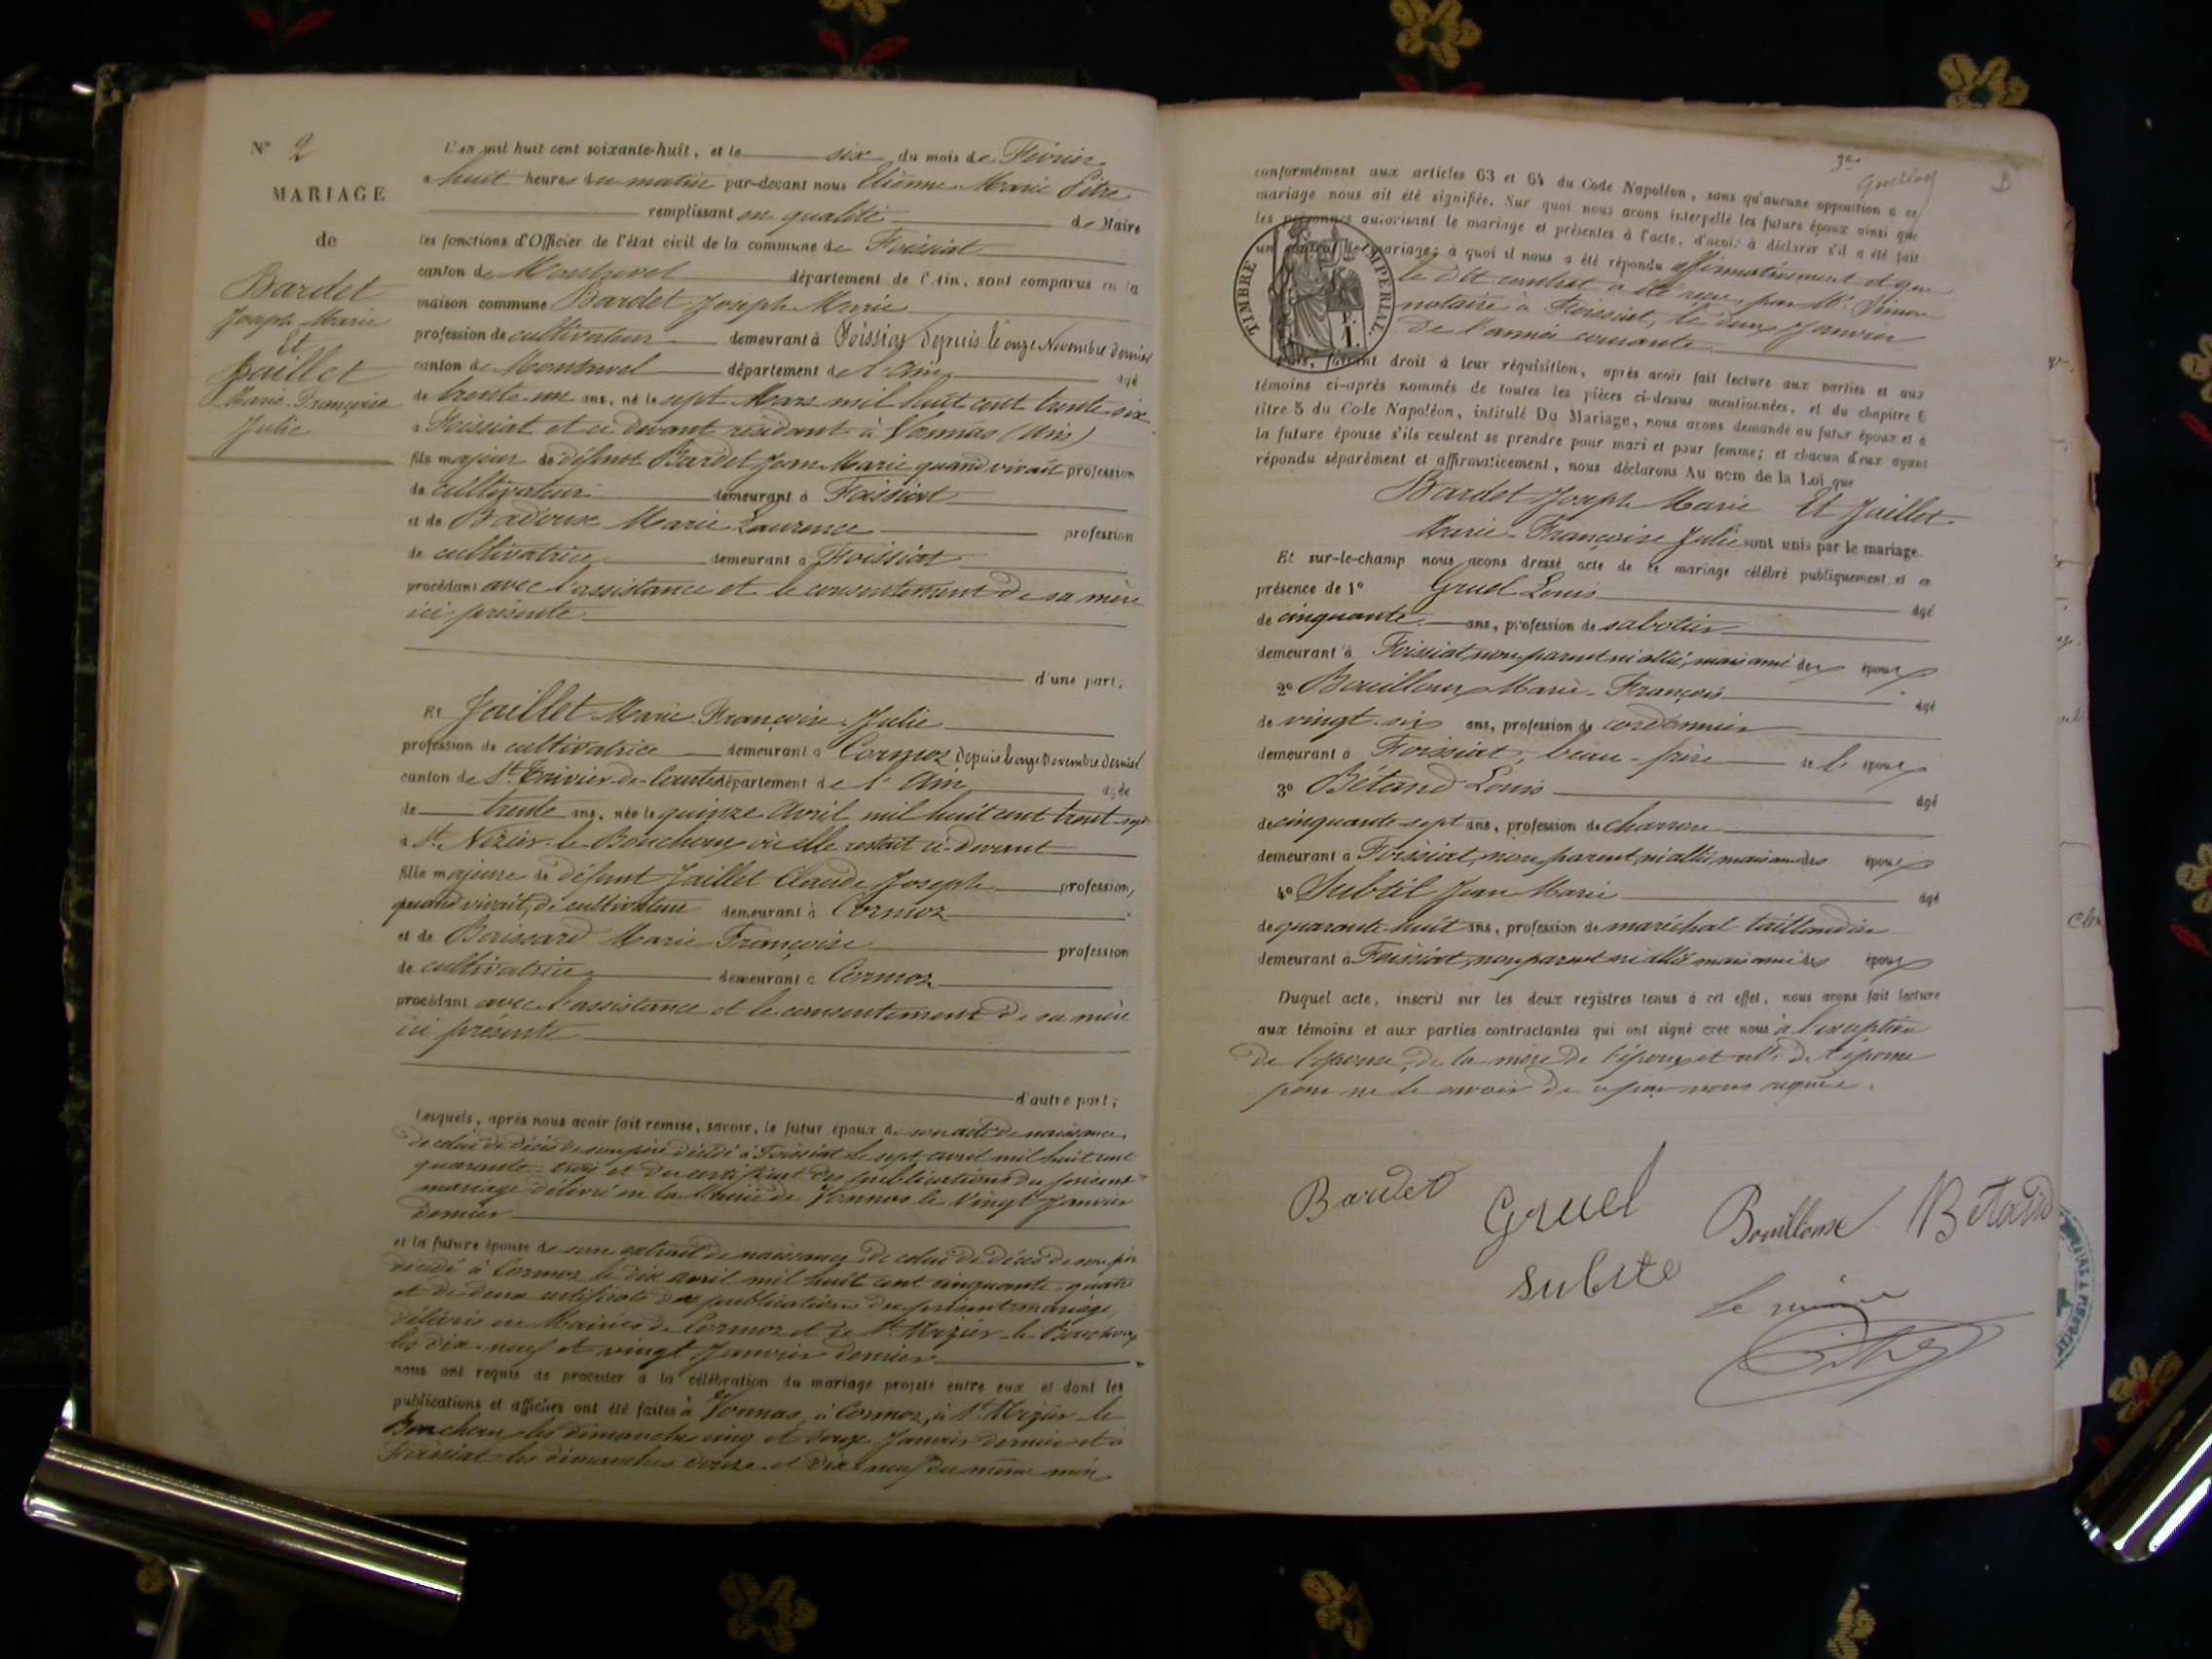 N° 2
MARIAGE
de
Bardet
Joseph Marie
Et
Jaillet
Marie-Françoise
Julie
L'an mil huit cent soixante-huit, et le six du mois de Février
à huit heures du matin par-devant nous Etienne Marie Pitre
remplissant en qualité de Maire
les fonctions d'Officier de l'état civil de la commune de Foissiat
canton de Montrevel département de l'Ain, sont comparus en la
maison commune Bardet Joseph Marie
profession de cultivateur demeurant à Foissiat depuis le onze Novembre dernier
canton de Montrevel département de l'Ain agé
de trente un ans, né le sept Mars mil huit cent trente-six
à Foissiat et ci devant résidant à Vonnas (Ain)
fils majeur de défunt Bardet Jean Marie quand vivait profession
de cultivateur demeurant à Foissiat
et de Badoux Marie Laurence profession
de cultivatrice demeurant à Foissiat
procédant avec l'assistance et le consentement de sa mère
ici présente
d'une part;
Et Jaillet Marie Françoise Julie
profession de cultivatrice demeurant à Cormoz depuis le onze Novembre dernier
canton de St Trivier-de-Courtes département de l'Ain agée
de trente ans, née le quinze Avril mil huit cent trent-sept
à St Nizier-le-Bouchoux où elle restait ci-devant
fille majeure de défunt Jaillet Claude Joseph profession,
quand vivait, de cultivateur demeurant à Cormoz
et de Boissard Marie Françoise profession
de cultivatrice demeurant à Cormoz
procédant avec l'assistance et le consentement de sa mère
ici présente
d'autre part;
Lesquels, après nous avoir fait remise, savoir, le futur époux de son acte de naissance,
de celui de décès de son père décédé à Foissiat le sept avril mil huit cent
quarante-trois et du certificat des publications du présent
mariage délivré en la Mairie de Vonnas le Vingt Janvier
dernier
et la future épouse de son extrait de naissance, de celui de décès de son père
décédé à Cormoz le dix avril mil huit cent cinquante-quatre
et de deux certificats des publications du présent mariage,
délivrés en Mairies de Cormoz et de St Nizier-le-Bouchoux
les dix-neuf et vingt Janvier dernier
nous ont requis de procéder à la célébration du mariage projeté entre eux et dont les
publications et affiches ont été faites à Vonnas, à Cormoz, à St Nizier-le
Bouchoux les dimanches cinq et douze Janvier dernier et à
Foissiat les dimanches douze et dix-neuf du même mois
3e
B
conformément aux articles 63 et 64 du Code Napoléon, sans qu'aucune opposition à ce
mariage nous ait été signifiée. Sur quoi nous avons interpellé les futurs époux ainsi que
les personnes autorisant le mariage et présentes à l'acte, d'avoir à déclarer s'il a été fait
un contrat de mariage; à quoi il nous a été répondu affirmativement et que
le dit contrat a été reçu par Me Simon
notaire à Foissiat, le deux Janvier
de l'année courante
TIMBRE IMPERIAL.
F.
1.
Puis, faisant droit à leur réquisition, après avoir fait lecture aux parties et aux
témoins ci-après nommés de toutes les pièces ci-dessus mentionnées, et du chapitre 6
titre 5 du Code Napoléon, intitulé Du Mariage, nous avons demandé au futur époux et à
la future épouse s'ils veulent se prendre pour mari et pour femme; et chacun d'eux ayant
répondu séparément et affirmativement, nous déclarons Au nom de la Loi que
Bardet Joseph Marie Et Jaillet
Marie-Françoise Julie sont unis par le mariage.
Et sur-le-champ nous avons dressé acte de ce mariage célébré publiquement et en
présence de 1° Gruel Louis agé
de cinquante ans, profession de sabotier
demeurant à Foissiat, non parent ni allié, mais ami des époux
2° Bouilloux Marie-François agé
de vingt-six ans, profession de cordonnier
demeurant à Foissiat, beau-frère de l' époux
3° Bétand Louis agé
de cinquante-sept ans, profession de charron
demeurant à Foissiat, non parent, ni allié, mais ami des époux
4° Subtil Jean Marie agé
de quarante-huit ans, profession de maréchal taillandier
demeurant à Foissiat, non parent ni allié mais ami des époux
Duquel acte, inscrit sur les deux registres tenus à cet effet, nous avons fait lecture
aux témoins et aux parties contractantes qui ont signé avec nous à l'exception
de l'épouse, de la mère de l'époux et celle de l'épouse
pour ne le savoir de ce par nous requise.
Bardet
Gruel
Bouilloux
Bétand
Subtil
Le maire
Pitre